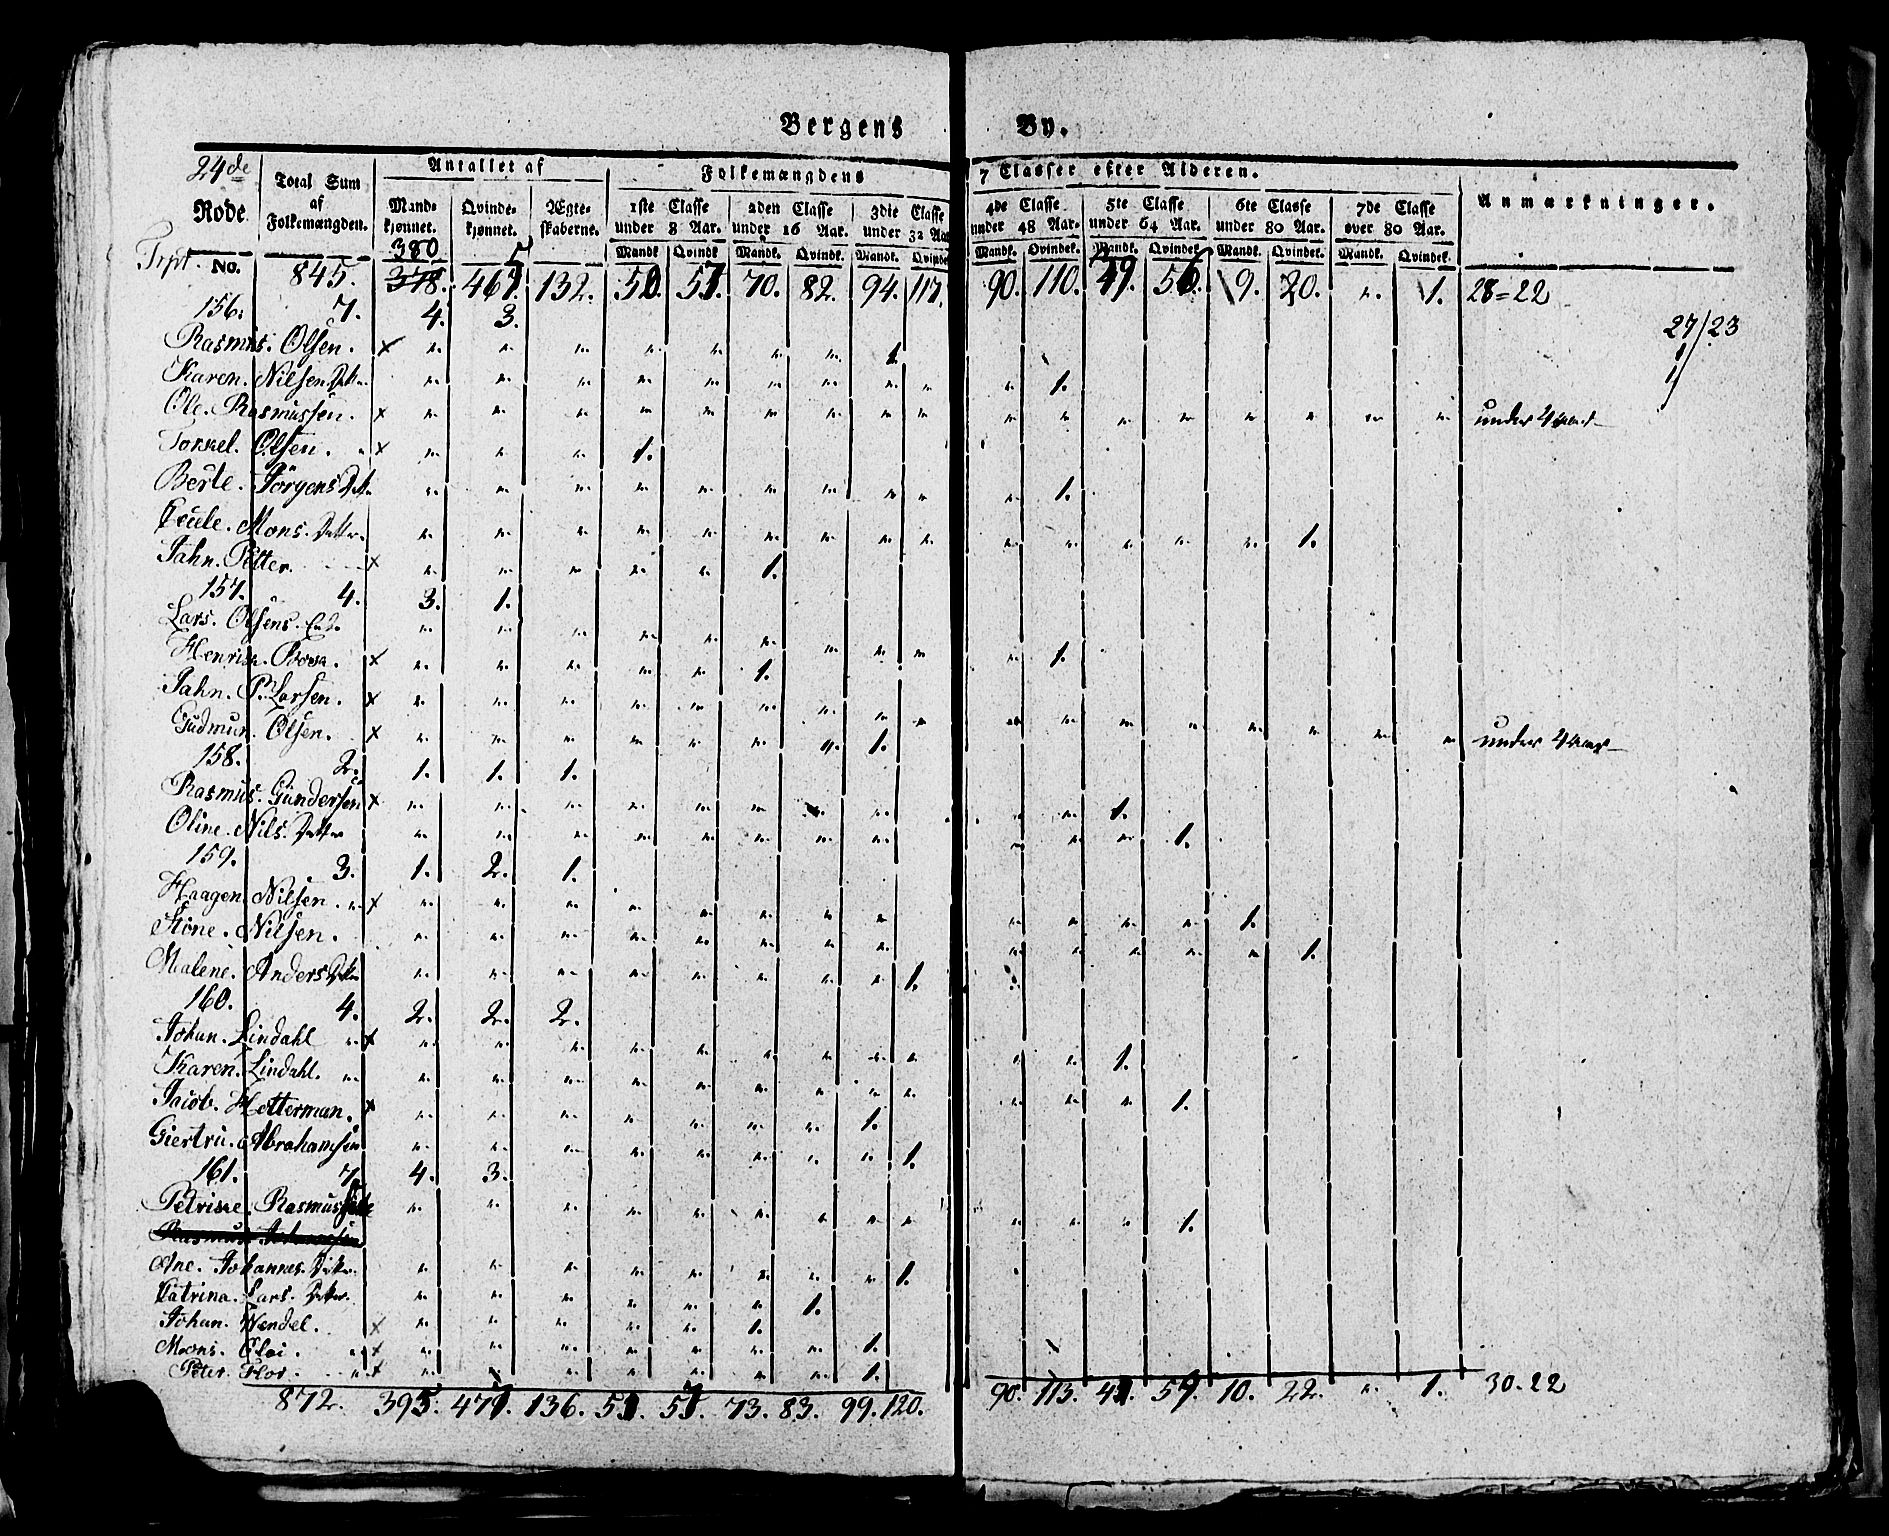 Bergens By.
24de Rode.
No.
Total Sum af Folkemængden.
Antallet af
Mandkjønnet. Qvindekjønnet. Ægteskaberne.
Folkemængdens 7 Classer efter Alderen.
1ste Classe under 8 Aar. 2den Classe under 16 Aar. 3die Classe under 32 Aar. 4de Classe under 48 Aar. 5te Classe under 64 Aar. 6te Classe under 80 Aar. 7de Classe over 80 Aar.
Mandk. Qvindek. Mandk. Qvindek. Mandk. Qvindek. Mandk. Qvindek. Mandk. Qvindek. Mandk. Qvindek. Mandk. Qvindek.
Anmærkninger.
380
Trpt. 845. 378. 132. 70. 82. 94. 117. 90. 110. 9. 20. „ 1. 28=22
156. 7. 4. 3.
27/23
Rasmus. Olsen. x „ „ „ „ „ „ „ 1
Karen. Nilsen Dtter „ „ „ „ „ „ „ „ „ „ 1.
Ole. Rasmussen. x „ „ „ „ „ „ „ „ „ „ „ „ „ „ „ „ „ under 4 aar
Torkel. Olsen. x „ „ „ 1.
Berte. Jörgens Dtr. „ „ „ „ „ „ „ „ „ „ 1.
Mons. Datter. „ „ „ „ „ „ „ „ „ „ „ „ „ „ 1.
Jahn. Petter. x „ „ „ „ „ 1.
157. 4. 3. 1.
Lars. Olsens. „ „ „ „ „ „ „ „ „ „ 1.
Henrich. x „ „ „ „ „ 1.
Jahn. P. Larsen. x „ „ „ „ „ „ „ „ „ „ „ „ „ „ „ „ „ under 4 aar
Gudmun. Olsen. x „ „ „ „ „ „ „ 1.
158. 2. 1. 1. 1.
Rasmus. Gundersen x „ „ „ „ „ „ „ „ „ „ 1.
Oline. Nils. Datter „ „ „ „ „ „ „ „ „ „ „ 1.
159. 3. 1. 2. 1.
Haagen. Nilsen. x „ „ „ „ „ „ „ „ „ „ „ „ 1.
Nilsen. „ „ „ „ „ „ „ „ „ „ „ „ „ 1.
Malene. Anders Dtr „ „ „ „ „ „ „ „ 1.
160. 4. 2. 2. 2.
Johan. Lindahl x „ „ „ „ „ „ „ „ „ „ „ 1.
Karen. Lindahl. „ „ „ „ „ „ „ „ „ „ „ „ 1.
Jacob. Hetterman. x „ „ „ „ „ „ „ 1.
Giertru. Abrahamsen „ „ „ „ „ „ „ „ 1.
161. 7. 4. 3.
Rasmussen „ „ „ „ „ „ „ „ „ „ „ „ 1.
Ane. Johannes. Dtr. „ „ „ „ „ „ „ „ 1.
Catrina. Lars. Datter. „ „ „ „ „ „ 1.
Johan. Wendel. x „ „ „ „ „ 1.
Mons. x „ „ „ „ „ „ „ 1.
Peter. Flor. x „ „ „ „ „ „ „ 1.
872. 395. 136. 73. 83. 99. 120. 90. 113. 10. 22. „ 1. 30. 22